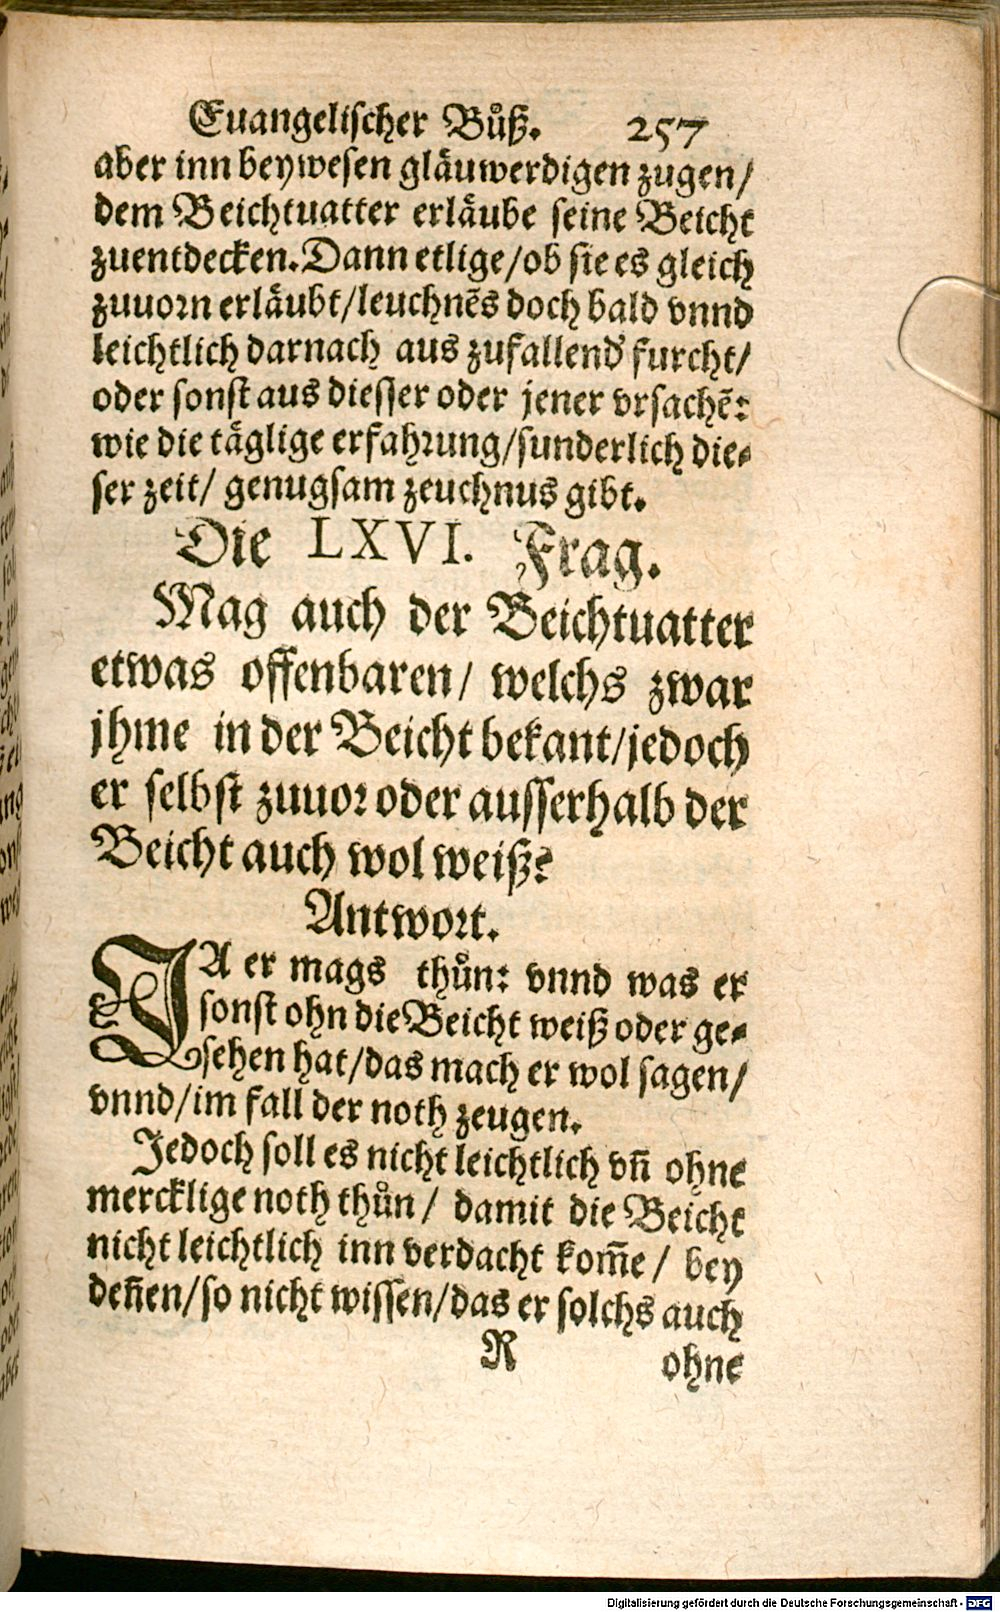 Euangelischer Bůß. 257
aber inn beywesen gläuwerdigen zugen/
dem Beichtuatter erläube seine Beicht
zuentdecken. Dann etlige/ob sie es gleich
zuuorn erläubt/leuchnẽs doch bald vnnd
leichtlich darnach aus zufallend' furcht/
oder sonst aus diesser oder jener vrsachẽ:
wie die täglige erfahrung/sunderlich die-
ser zeit/ genugsam zeuchnus gibt.
Die LXVI. Frag.
Mag auch der Beichtuatter
etwas offenbaren/ welchs zwar
jhme in der Beicht bekant/jedoch
er selbst zuuor oder ausserhalb der
Beicht auch wol weiß?
Antwort.
JA er mags thůn: vnnd was er
sonst ohn die Beicht weiß oder ge-
sehen hat/das mach er wol sagen/
vnnd/im fall der noth zeugen.
Jedoch soll es nicht leichtlich vñ ohne
mercklige noth thůn/ damit die Beicht
nicht leichtlich inn verdacht kom̃e/ bey
deñen/so nicht wissen/das er solchs auch
R ohne
Digitalisierung gefördert durch die Deutsche Forschungsgemeinschaft - DFG